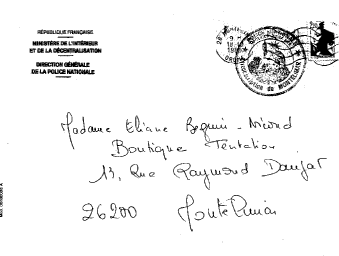 RÉPUBLIQUE FRANÇAISE
MINISTÈRE DE L'INTÉRIEUR
ET DE LA DÉCENTRALISATION
DIRECTION GÉNÉRALE
DE LA POLICE NATIONALE
de MONTELIMAR
Madame Eliane Beguin-Nicoud
Boutique Tentation
13, Rue Raymond Daujat
26200 Montélimar